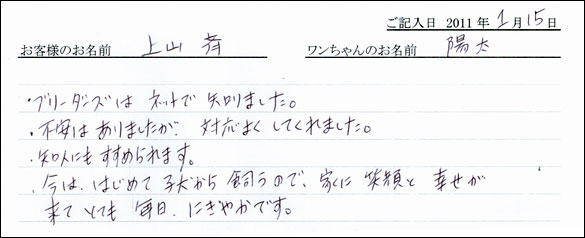 ご記入日 2011 年 1 月 15 日
お客様のお名前 上山 斉 ワンちゃんのお名前 陽太
・ブリーダーズは ネットで 知りました。
・不安は ありましたが、対応よく してくれました。
・知人にも すすめられます。
・今は、はじめて 子犬から 飼うので、家に 笑顔と 幸せが
来て とても 毎日、にぎやかです。